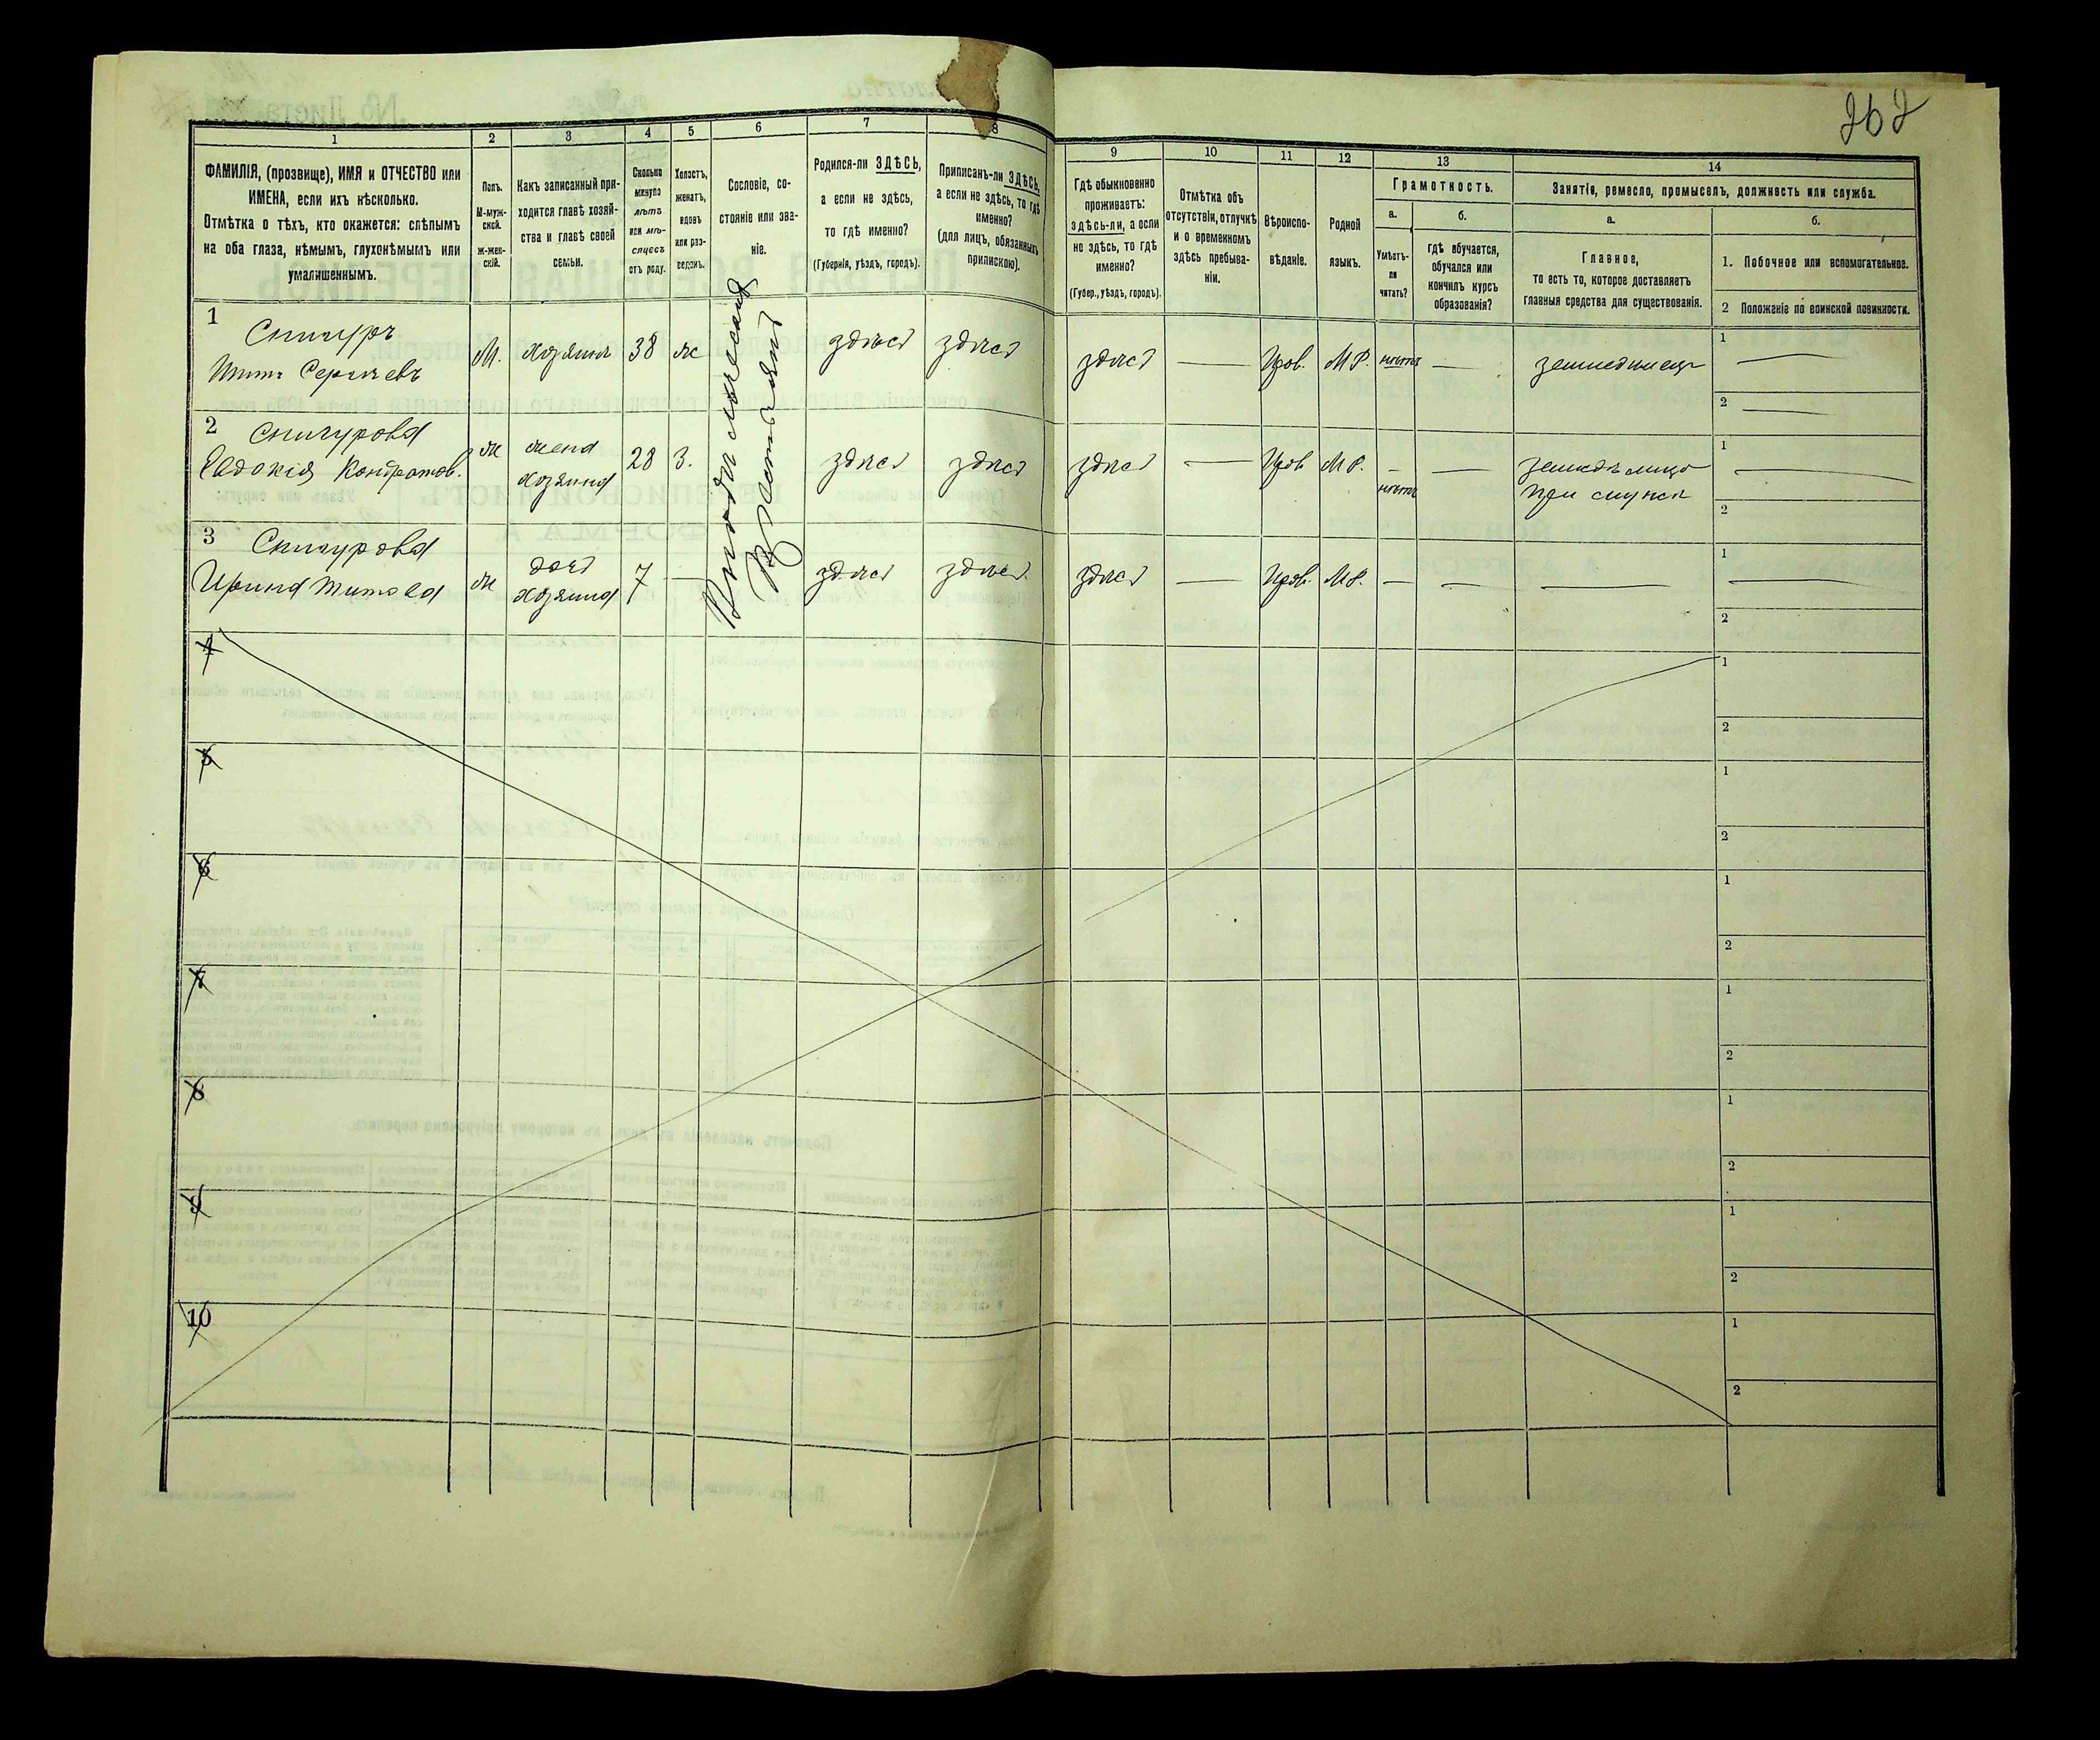 262
1 2 3 4 5 6 7 8 9 10 11 12 13 14
ФАМИЛІЯ, (прозвище), ИМЯ и ОТЧЕСТВО или
ИМЕНА, если ихъ нѣсколько.
Отмѣтка о тѣхъ, кто окажется: слѣпымъ
на оба глаза, нѣмымъ, глухонѣмымъ или
умалишеннымъ.
Полъ.
М-муж-
ской.
Ж-жен-
скій.
Какъ записанный при-
ходится главѣ хозяй-
ства и главѣ своей
семьи.
Сколько
минуло
лѣтъ
или мѣ-
сяцевъ
отъ роду.
Холостъ,
женатъ,
вдовъ
или раз-
веденъ.
Сословіе, со-
стояніе или зва-
ніе.
Родился-ли ЗДѢСЬ,
а если не здѣсь,
то гдѣ именно?
(Губернія, уѣздъ, городъ).
Приписанъ-ли ЗДѢСЬ,
а если не здѣсь, то гдѣ
именно?
(для лицъ, обязанныхъ
припискою).
Гдѣ обыкновенно
проживаетъ:
здѣсь-ли, а если
не здѣсь, то гдѣ
именно?
(Губер., уѣздъ, городъ).
Отмѣтка объ
отсутствіи, отлучкѣ
и о временномъ
здѣсь пребыва-
ніи.
Вѣроиспо-
вѣданіе.
Родной
языкъ.
Грамотность.
а.
Умѣетъ-
ли
читать?
б.
гдѣ обучается,
обучался или
кончилъ курсъ
образованія?
Занятіе, ремесло, промыселъ, должность или служба.
а.
Главное,
то есть то, которое доставляетъ
главныя средства для существованія.
б.
1. Побочное или вспомогательное.
2 Положеніе по воинской повинности.
1 Снигуръ
Титъ Сергѣевъ
М. хозяинъ 38 ж
здѣсь здѣсь здѣсь — Прав. М.Р. нѣтъ — земледѣлецъ
1 —
2 —
2 Снигурова
Евдокія Кондратов.
ж жена
хозяина 28 З.
здѣсь здѣсь здѣсь — Прав М.Р. — нѣтъ —
при мужѣ
1 —
2
3 Снигурова
Ирина Титова
ж дочь
хозяина 7 —
здѣсь здѣсь здѣсь — Прав. М.Р. — — —
1 —
2
Крестьяне
4
1
2
5
1
2
6
1
2
7
1
2
8
1
2
9
1
2
10
1
2